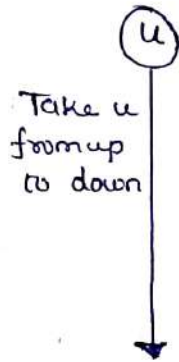 u
Take u
from up
to down